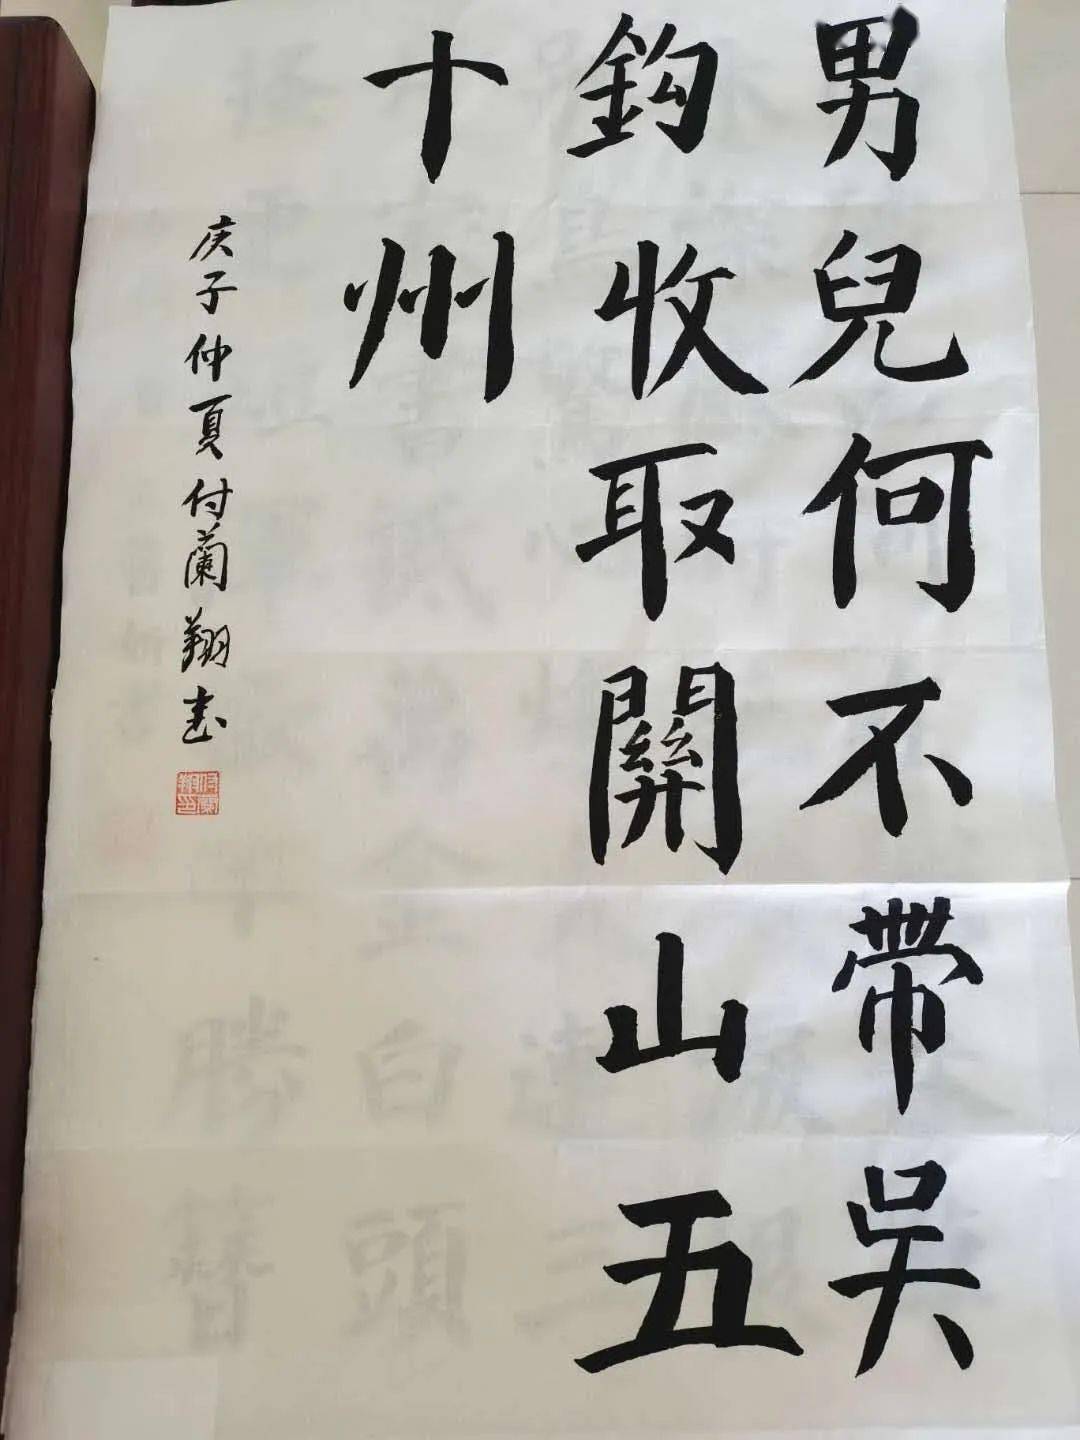 男兒何不帶吳
鈎收取關山五
十州
庚子仲夏付蘭翔書